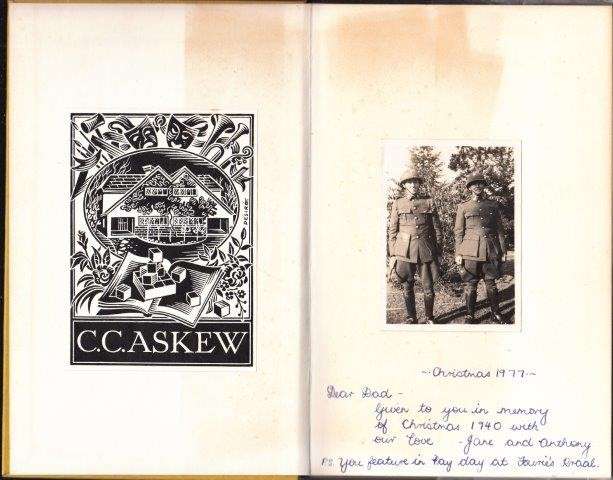 C.C.ASKEW
~ Christmas 1977 ~
Dear Dad -
Given to you in memory
of Christmas 1940 with
our love - Jane and Anthony
P.S. You feature in Pay day at Fourie's Draai.